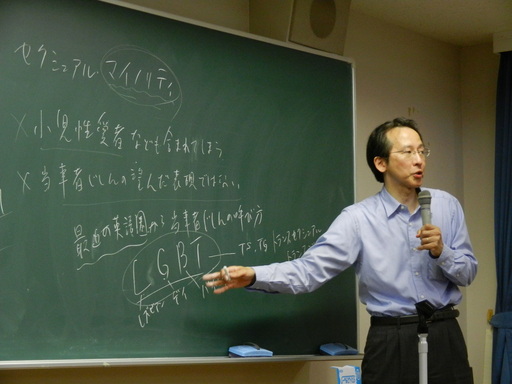 セクシュアル・マイノリティ
× 小児性愛者なども含まれてしまう
× 当事者じしんの望んだ表現ではない。
最近の英語圏から当事者じしんの呼び方
LGBT ― TS.TG トランスセクシュアル
レズビアン ゲイ